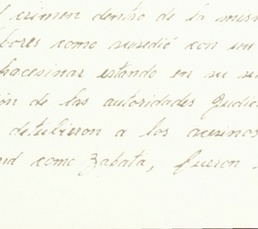 l crimen dentro de la mism
bores como susedió con un
hacesinar estando en su
ón de las autoridades Judic
detubieron a los acesinos
and como Zabata, fueron